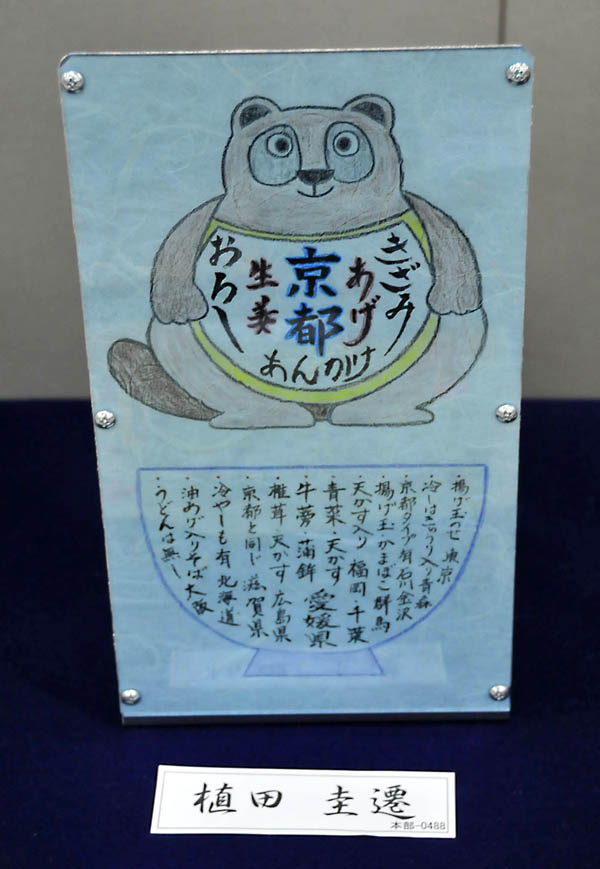 きざみ
あげ
京都
生姜
おろし
あんかけ
・揚げ玉のせ 東京
・冷しはきゅうり入り青森
・京都タイプ有石川金沢
・揚げ玉かまばこ群馬
・天かす入り 福岡・千葉
・青菜・天かす 愛媛県
・牛蒡・蒲鉾
・椎茸・天かす 広島県
・京都と同じ 滋賀県
・冷やしも有 北海道
・油あげ入りそば 大阪
・うどんは無し
植田 圭遷
本部-0488